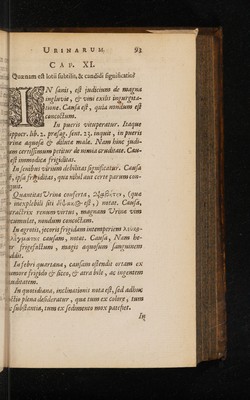 URINARUM. 93
CAP. XI.
Quænam est lotii subtilis, & candidi significatio?
IN sanis, est judicium de magna
ingluvie, & vini exilis ingurgita-
tione. Causa est, quia nondum est
concoctum.
In pueris vituperatur. Itaque
lib. 2. præsag. sent. 23. inquit, in pueris
urina aquosa & diluta mala. Nam hinc judi-
cium certissimum petitur de nimia cruditate. Cau-
est immodica frigiditas.
In senibus virium debilitas significatur. Causa
ipsa frigiditas, quæ nihil aut certe parum con-
Quantitas Urinæ conserta, (quæ
inexplebili siti est) notat. Causa,
attractrix renum virtus, magnam Urinæ vim
cumulat, nondum concoctam.
In ægrotis, jecoris frigidam intemperiem
causam, notat. Causa, Nam he-
frigefactum, magis aquosum sanguinem
reddit.
In febri quartana, causam ostendit ortam ex
humore frigido & sicco, & atra bile, ac ingentem
cruditatem.
In quotidiana, inclinationis nota est, sed adhuc
plena desideratur, quæ tum ex colore, tum
substantia, tum ex sedimento mox patefiet.
In